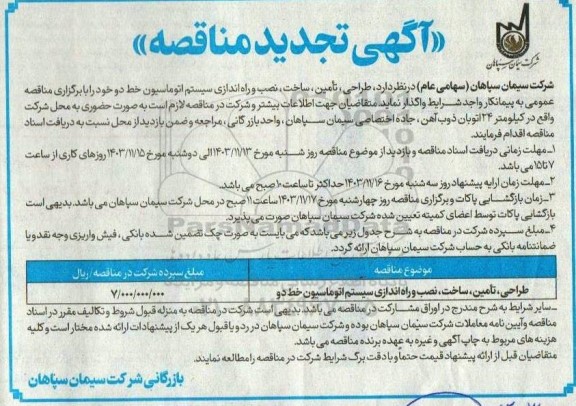 «آگهی تجدید مناقصه»
شرکت سیمان سپاهان
شرکت سیمان سپاهان (سهامی عام) در نظر دارد، طراحی، تأمین، ساخت، نصب و راه اندازی سیستم اتوماسیون خط دو خود را با برگزاری مناقصه
عمومی به پیمانکار واجد شرایط واگذار نماید متقاضیان جهت اطلاعات بیشتر و شرکت در مناقصه لازم است به صورت حضوری به محل شرکت
واقع در کیلومتر ۲۴ اتوبان ذوب آهن، جاده اختصاصی سیمان سپاهان، واحد بازرگانی، مراجعه و ضمن بازدید از محل نسبت به دریافت اسناد
مناقصه اقدام فرمایند.
۱ـ مهلت زمانی دریافت اسناد مناقصه و بازدید از موضوع مناقصه روز شنبه مورخ ۱۴۰۳/۱۱/۱۳ الی دوشنبه مورخ ۱۴۰۳/۱۱/۱۵ روزهای کاری از ساعت
۷ تا ۱۵ می باشد.
۲ـ مهلت زمان ارایه پیشنهاد روز سه شنبه مورخ ۱۴۰۳/۱۱/۱۶ حداکثر تا ساعت ۱۰ صبح می باشد.
۳ـ زمان بازگشایی پاکات و برگزاری مناقصه روز چهارشنبه مورخ ۱۴۰۳/۱۱/۱۷ ساعت ۱۱ صبح در محل شرکت سیمان سپاهان می باشد. بدیهی است
بازگشایی پاکات توسط اعضای کمیته تعیین شده شرکت سیمان سپاهان صورت می پذیرد.
۴ـ مبلغ سپرده شرکت در مناقصه به شرح جدول زیر می باشد که می بایست به صورت چک تضمین شده بانکی، فیش واریزی وجه نقد و یا
ضمانتنامه بانکی به حساب شرکت سیمان سپاهان ارائه گردد.
موضوع مناقصه مبلغ سپرده شرکت در مناقصه / ریال
طراحی، تامین، ساخت، نصب و راه اندازی سیستم اتوماسیون خط دو ۷/۰۰۰/۰۰۰/۰۰۰
ـ سایر شرایط به شرح مندرج در اوراق مشارکت در مناقصه می باشد. بدیهی است شرکت در مناقصه به منزله قبول شروط و تکالیف مقرر در اسناد
مناقصه و آیین نامه معاملات شرکت سیمان سپاهان بوده و شرکت سیمان سپاهان در رد و یا قبول هر یک از پیشنهادات ارائه شده مختار است و کلیه
هزینه های مربوط به چاپ آگهی و غیره به عهده برنده مناقصه می باشد.
متقاضیان قبل از ارائه پیشنهاد قیمت حتما و با دقت برگ شرایط شرکت در مناقصه را مطالعه نمایند.
بازرگانی شرکت سیمان سپاهان